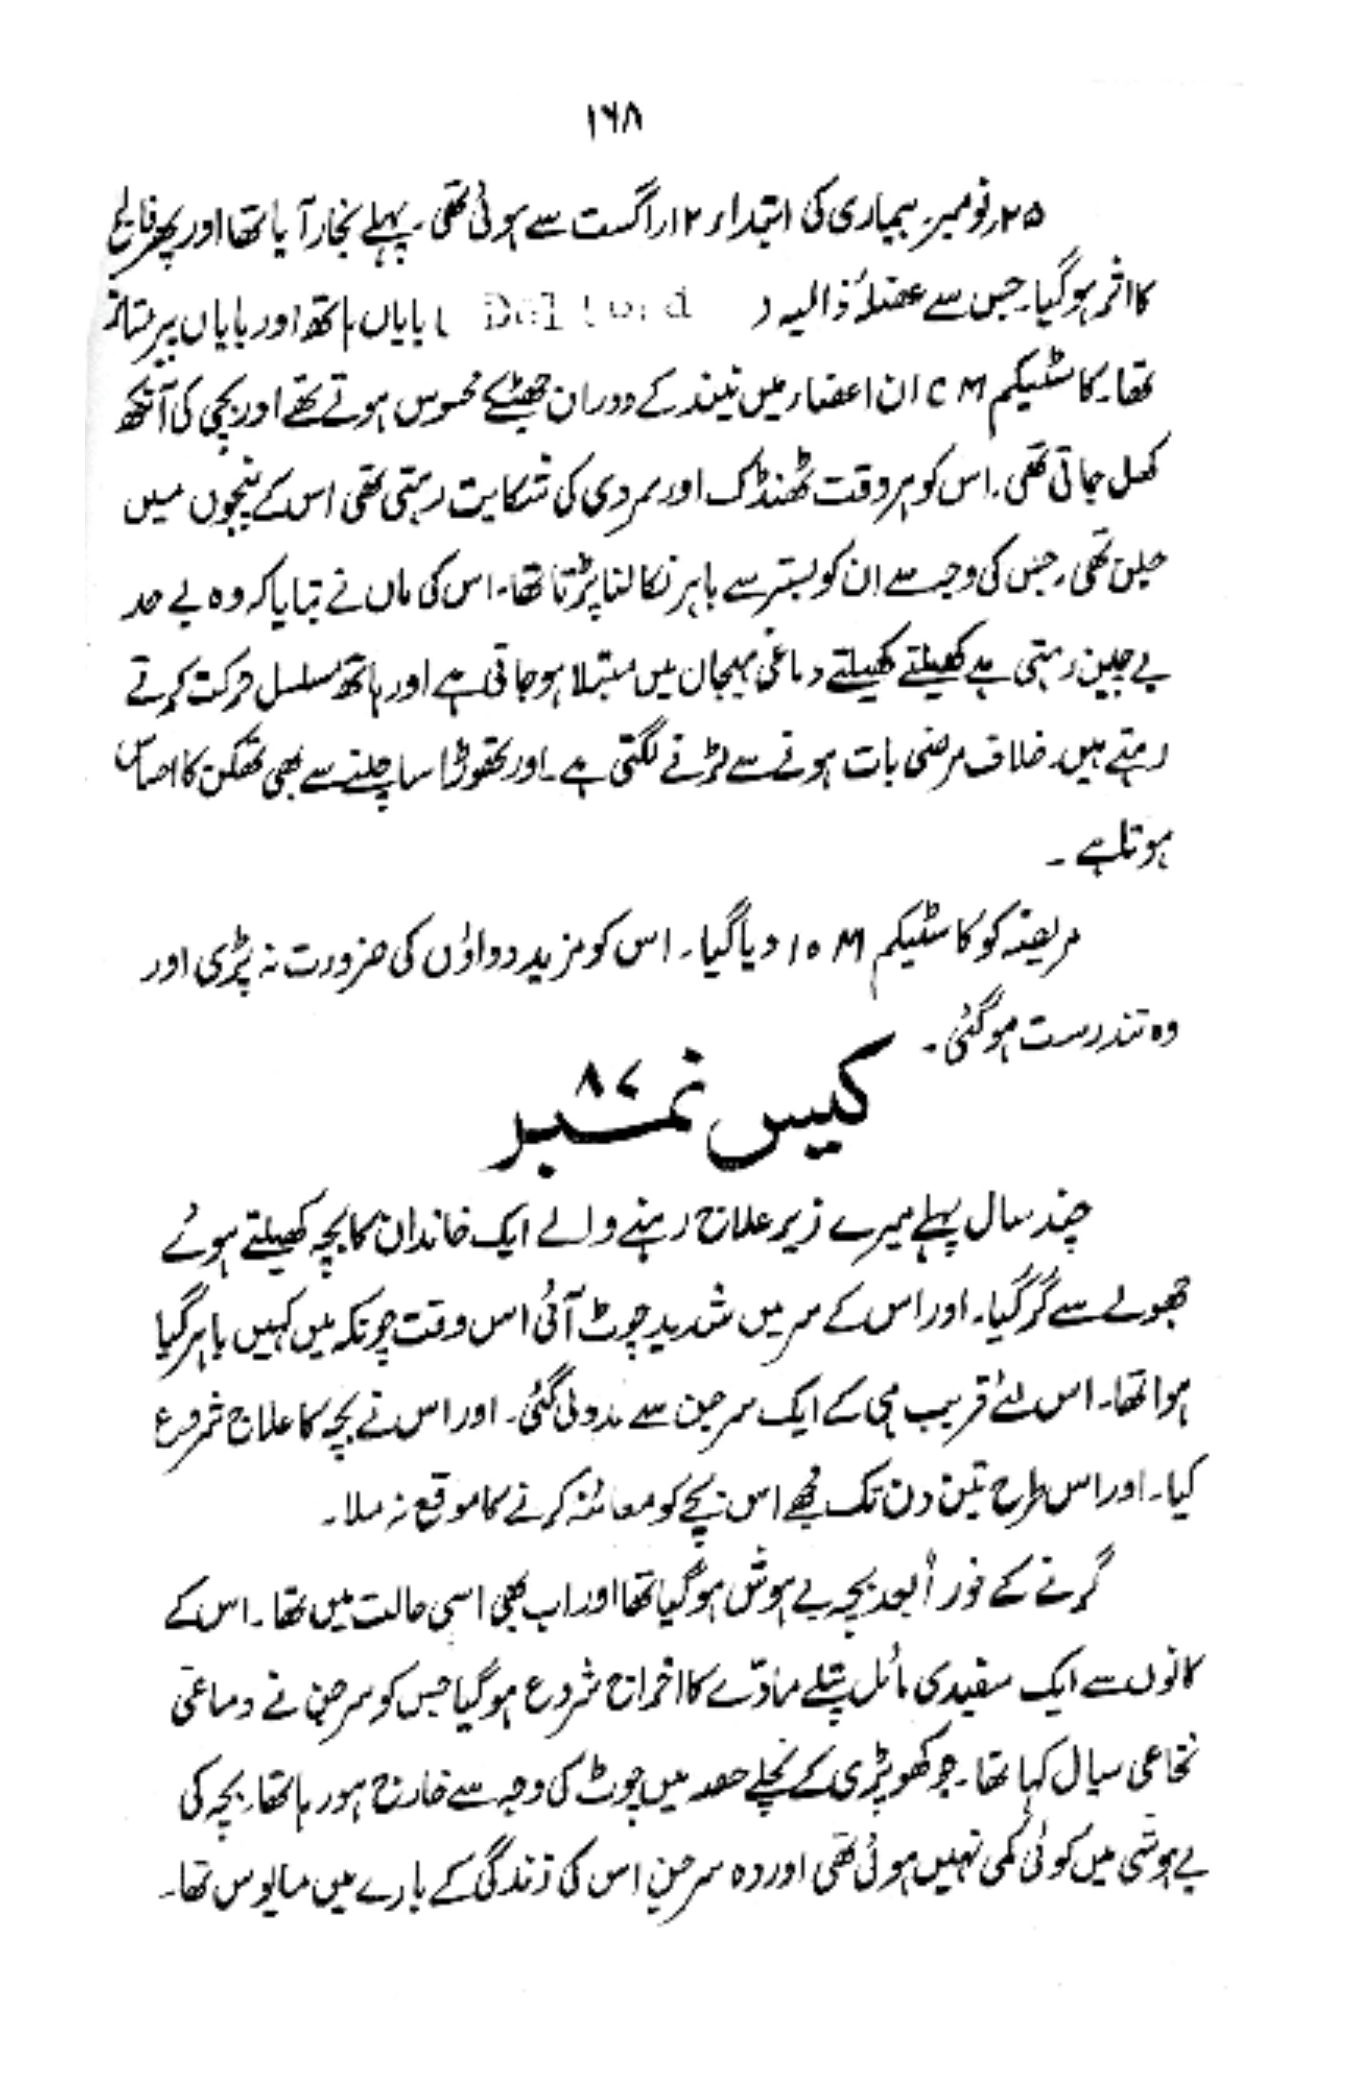 ۱۶۸
۲۵؍نومبر۔ بیماری کی ابتداء ۱۲؍اگست سے ہوئی تھی۔ پہلے بخار آیا تھا اور پھر فالج
کا اثر ہو گیا۔ جس سے عضلۂ ذالیہ ( ) بایاں ہاتھ اور بایاں پیر متاثر
تھا۔ کاسٹیکم CM ان اعضاء میں نیند کے دوران جھٹکے محسوس ہوتے تھے اور بچی کی آنکھ
کھل جاتی تھی۔ اس کو ہر وقت ٹھنڈک اور سردی کی شکایت رہتی تھی اس کے پنجوں میں
جلن تھی۔ جس کی وجہ سے ان کو بستر سے باہر نکالنا پڑتا تھا۔ اس کی ماں نے بتایا کہ وہ بے حد
بے چین رہتی ہے کھیلتے کھیلتے دماغی ہیجان میں مبتلا ہو جاتی ہے اور ہاتھ مسلسل حرکت کرتے
رہتے ہیں۔ خلاف مرضی بات ہونے سے لڑنے لگتی ہے۔ اور تھوڑا سا چلنے سے بھی تھکن کا احساس
ہوتا ہے۔
مریضہ کو کاسٹیکم 10M دیا گیا۔ اس کو مزید دواؤں کی ضرورت نہ پڑی اور
وہ تندرست ہو گئی۔
کیس نمبر ۸۷
چند سال پہلے میرے زیر علاج رہنے والے ایک خاندان کا بچہ کھیلتے ہوئے
جھولے سے گر گیا۔ اور اس کے سر میں شدید چوٹ آئی اس وقت چونکہ میں کہیں باہر گیا
ہوا تھا۔ اس لئے قریب ہی کے ایک سرجن سے مدد لی گئی۔ اور اس نے بچہ کا علاج شروع
کیا۔ اور اس طرح تین دن تک مجھے اس بچے کو معائنہ کرنے کا موقع نہ ملا۔
گرنے کے فوراً بعد بچہ بے ہوش ہو گیا تھا اور اب بھی اسی حالت میں تھا۔ اس کے
کانوں سے ایک سفیدی مائل پتلے مادّے کا اخراج شروع ہو گیا جس کو سرجن نے دماغی
نخاعی سیال کہا تھا۔ جو کھوپڑی کے نچلے حصہ میں چوٹ کی وجہ سے خارج ہو رہا تھا۔ بچہ کی
بے ہوشی میں کوئی کمی نہیں ہوئی تھی اور وہ سرجن اس کی زندگی کے بارے میں مایوس تھا۔